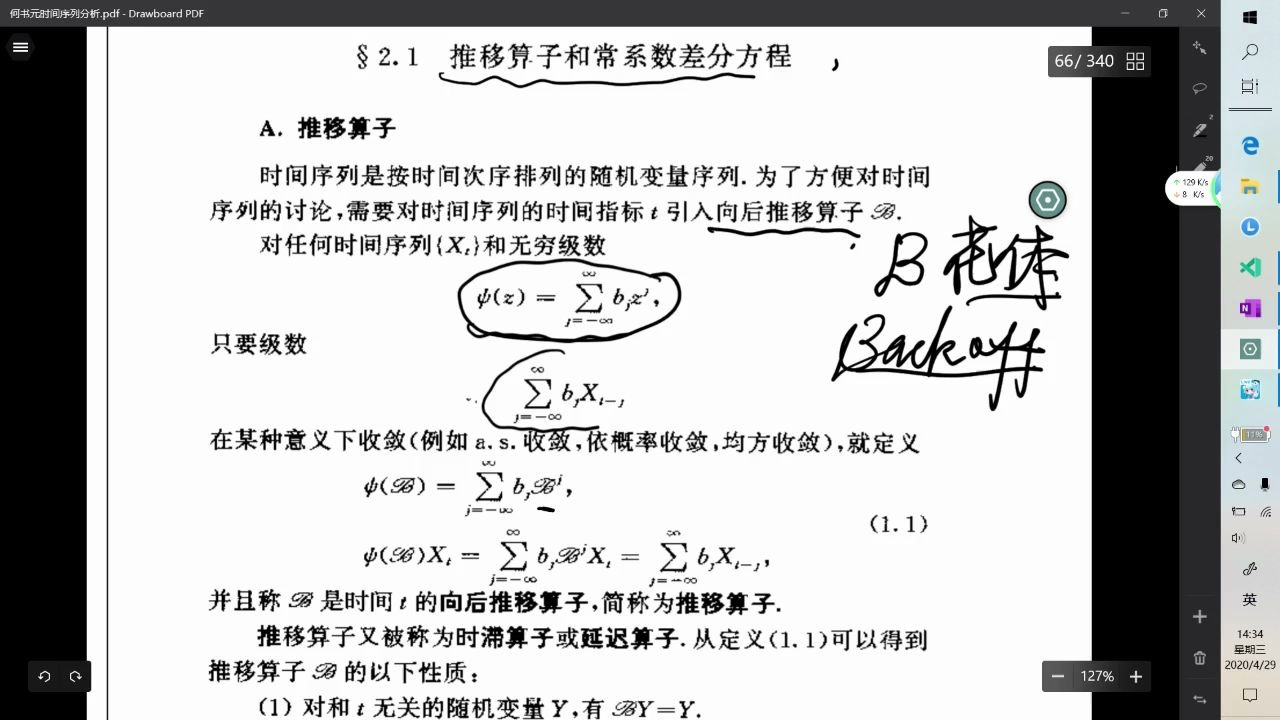 何书元时间序列分析.pdf - Drawboard PDF
§ 2.1 推移算子和常系数差分方程
66/ 340
A. 推移算子
时间序列是按时间次序排列的随机变量序列. 为了方便对时间
序列的讨论,需要对时间序列的时间指标 t 引入向后推移算子 ℬ.
对任何时间序列{Xₜ}和无穷级数
ψ(z) = ∑_{j=-∞}^{∞} bⱼzʲ,
B 花体
只要级数
Backoff
∑_{j=-∞}^{∞} bⱼXₜ₋ⱼ
在某种意义下收敛(例如 a.s. 收敛,依概率收敛,均方收敛),就定义
ψ(ℬ) = ∑_{j=-∞}^{∞} bⱼℬʲ,
(1.1)
ψ(ℬ)Xₜ = ∑_{j=-∞}^{∞} bⱼℬʲXₜ = ∑_{j=-∞}^{∞} bⱼXₜ₋ⱼ,
并且称 ℬ 是时间 t 的向后推移算子,简称为推移算子.
推移算子又被称为时滞算子或延迟算子. 从定义(1.1)可以得到
推移算子 ℬ 的以下性质:
(1) 对和 t 无关的随机变量 Y,有 ℬY=Y.
127%
129 K/s
8 K/s
英
14:34
星期三
2020/4/29